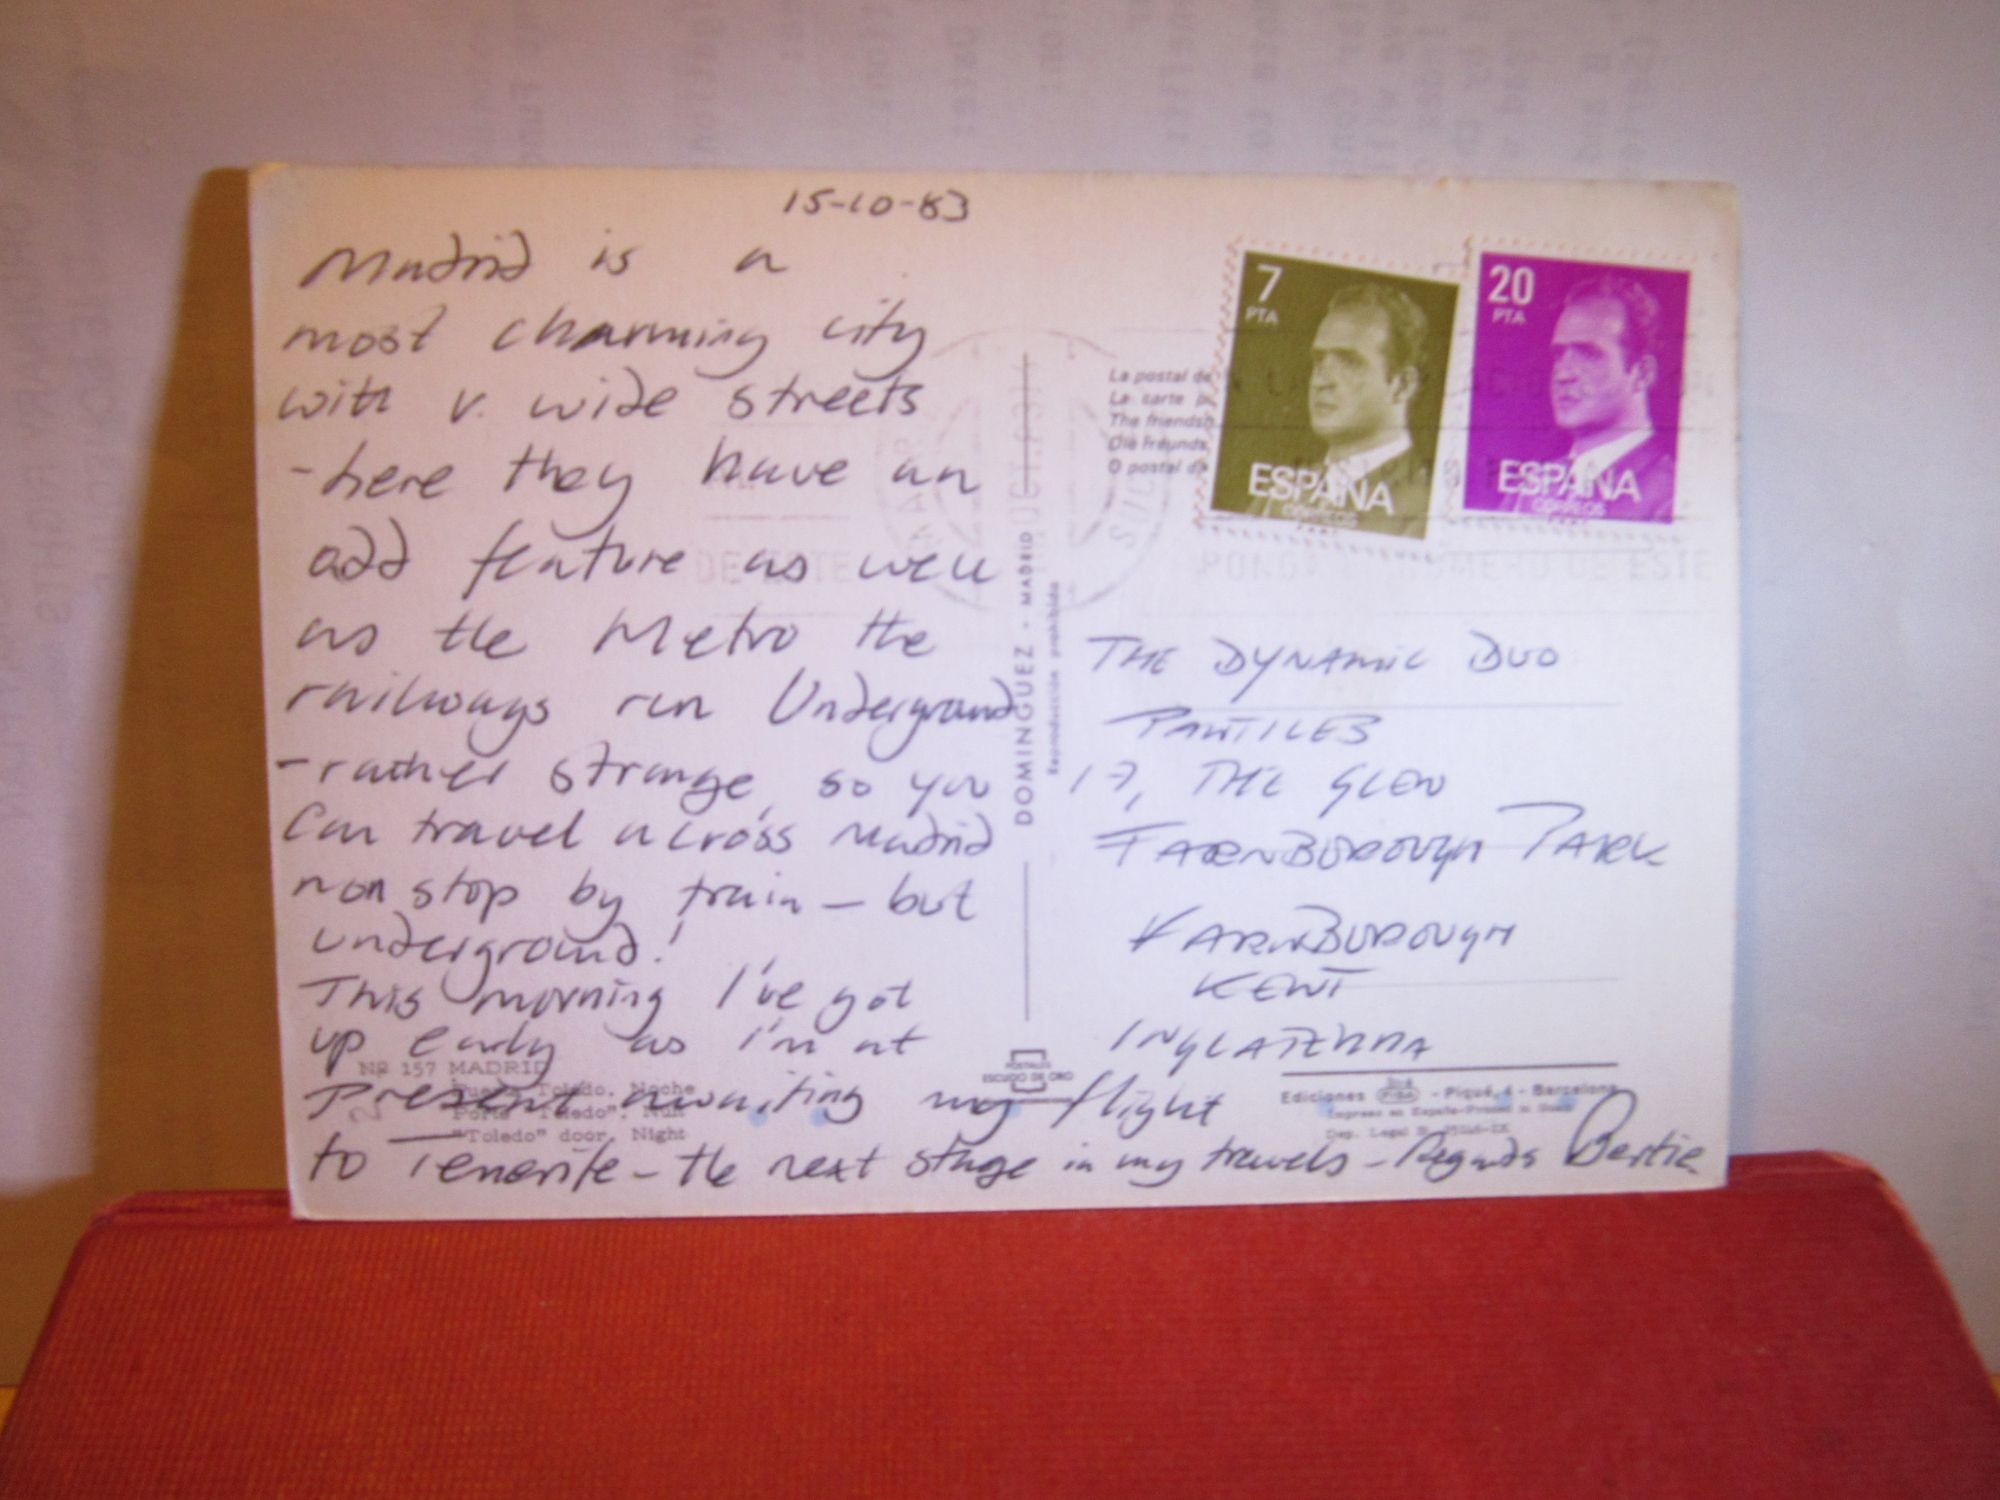 15-10-83
Madrid is a
most charming city
with v. wide streets
- here they have an
odd feature as well
as the Metro the
railways run Underground
- rather strange, so you
can travel across Madrid
non stop by train - but
underground!
This morning I've got
up early as I'm at
present awaiting my flight
to Tenerife - the next stage in my travels - Regards Bertie
Nº 157 MADRID
Toledo. Noche
"Toledo" door. Night
DOMINGUEZ - MADRID
Reproducción prohibida
POSTALES
ESCUDO DE ORO
La postal de
La carte
The friends
O postal de
7
PTA
ESPAÑA
CORREOS
20
PTA
ESPAÑA
CORREOS
NUMERO DE ESTE
THE DYNAMIC DUO
PANTILES
17, THE GLEN
FARNBOROUGH PARK
FARNBOROUGH
KENT
INGLATERRA
Ediciones FISA - Piqué, 4 - Barcelona